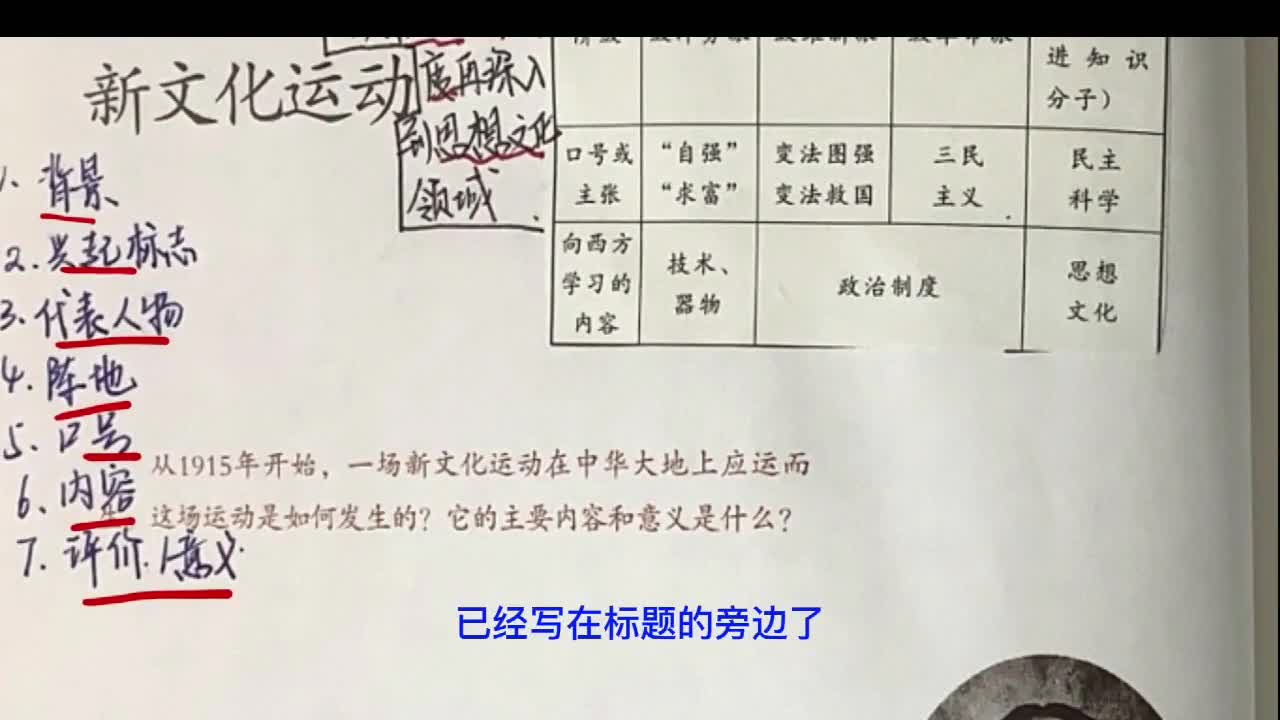 新文化运动
度再深入
到思想文化
领域
1. 背景
2. 兴起标志
3. 代表人物
4. 阵地
5. 口号
6. 内容
7. 评价、意义
进知识
分子）
口号或
主张
“自强”
“求富”
变法图强
变法救国
三民
主义
民主
科学
向西方
学习的
内容
技术、
器物
政治制度
思想
文化
从1915年开始，一场新文化运动在中华大地上应运而
这场运动是如何发生的？它的主要内容和意义是什么？
已经写在标题的旁边了